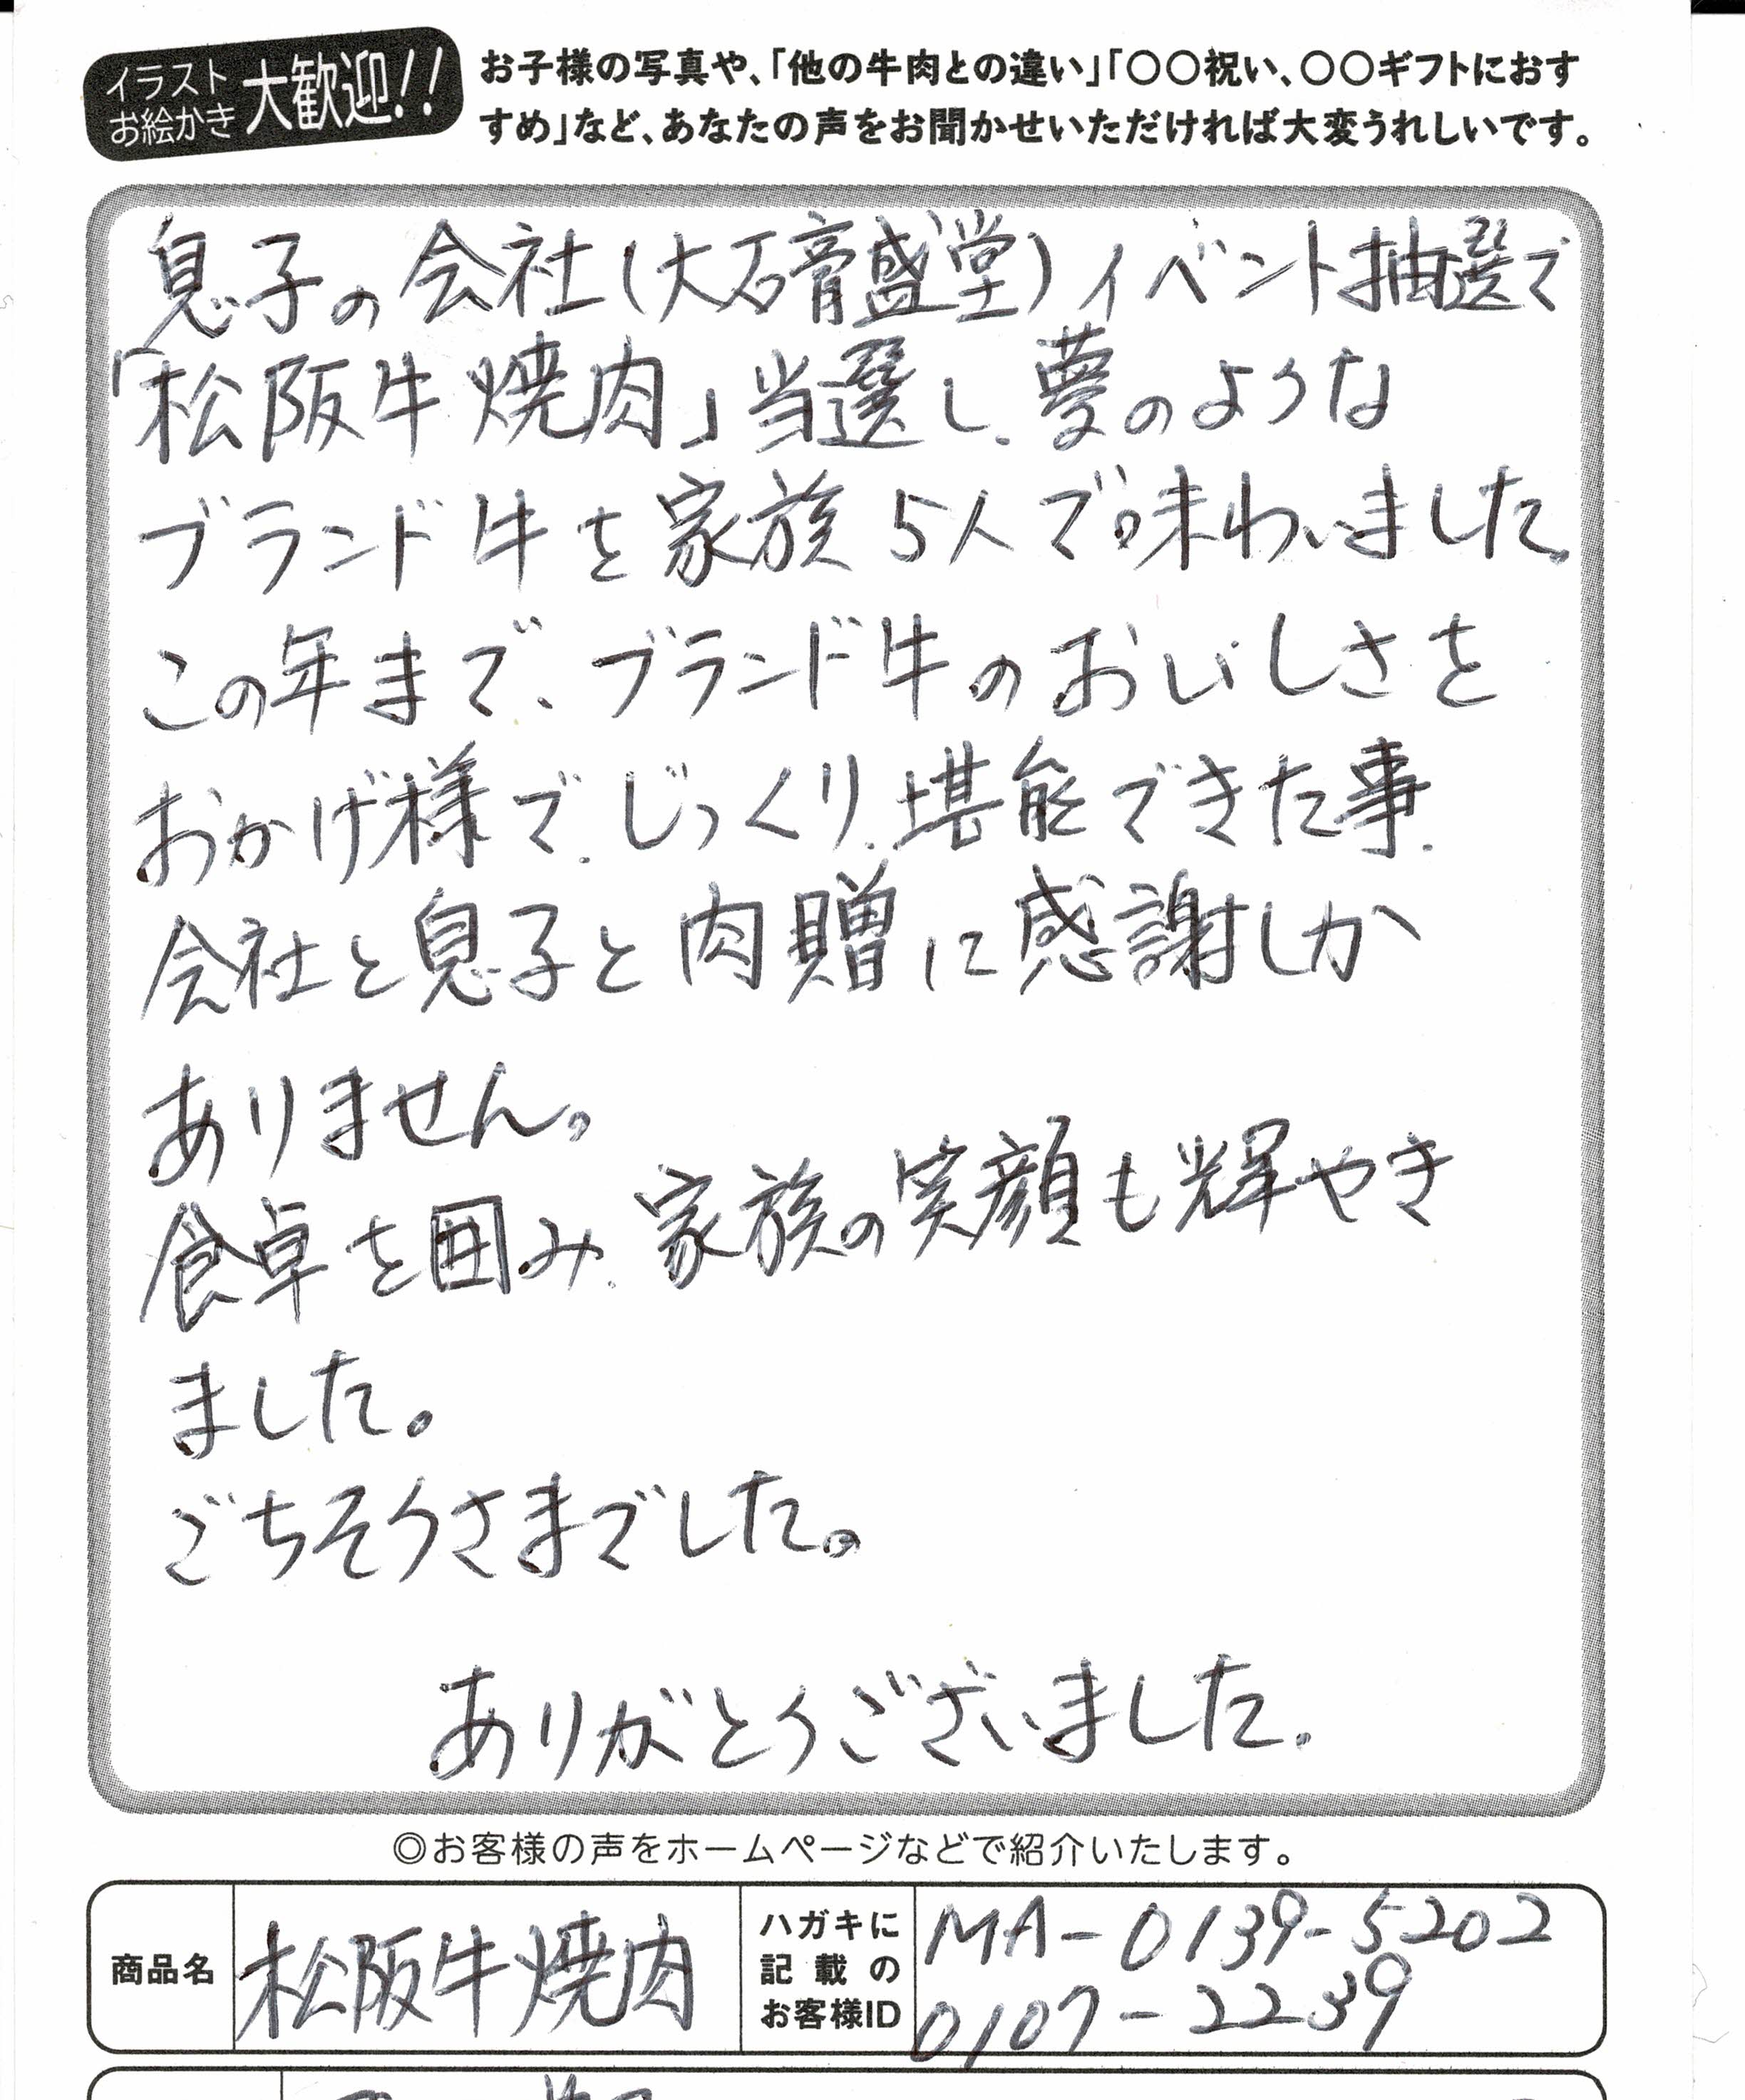 イラスト
お絵かき
大歓迎!!
お子様の写真や、「他の牛肉との違い」「〇〇祝い、〇〇ギフトにおす
すめ」など、あなたの声をお聞かせいただければ大変うれしいです。
息子の会社(大石膏盛堂)イベント抽選で
「松阪牛焼肉」当選し、夢のような
ブランド牛を家族5人で味わいました。
この年まで、ブランド牛のおいしさを
おかげ様で、じっくり、堪能できた事、
会社と息子と肉贈に感謝しか
ありません。
食卓を囲み、家族の笑顔も輝やき
ました。
ごちそうさまでした。
ありがとうございました.
◎お客様の声をホームページなどで紹介いたします。
商品名
松阪牛焼肉
ハガキに
記載の
お客様ID
MA-0139-5202
0107-2239